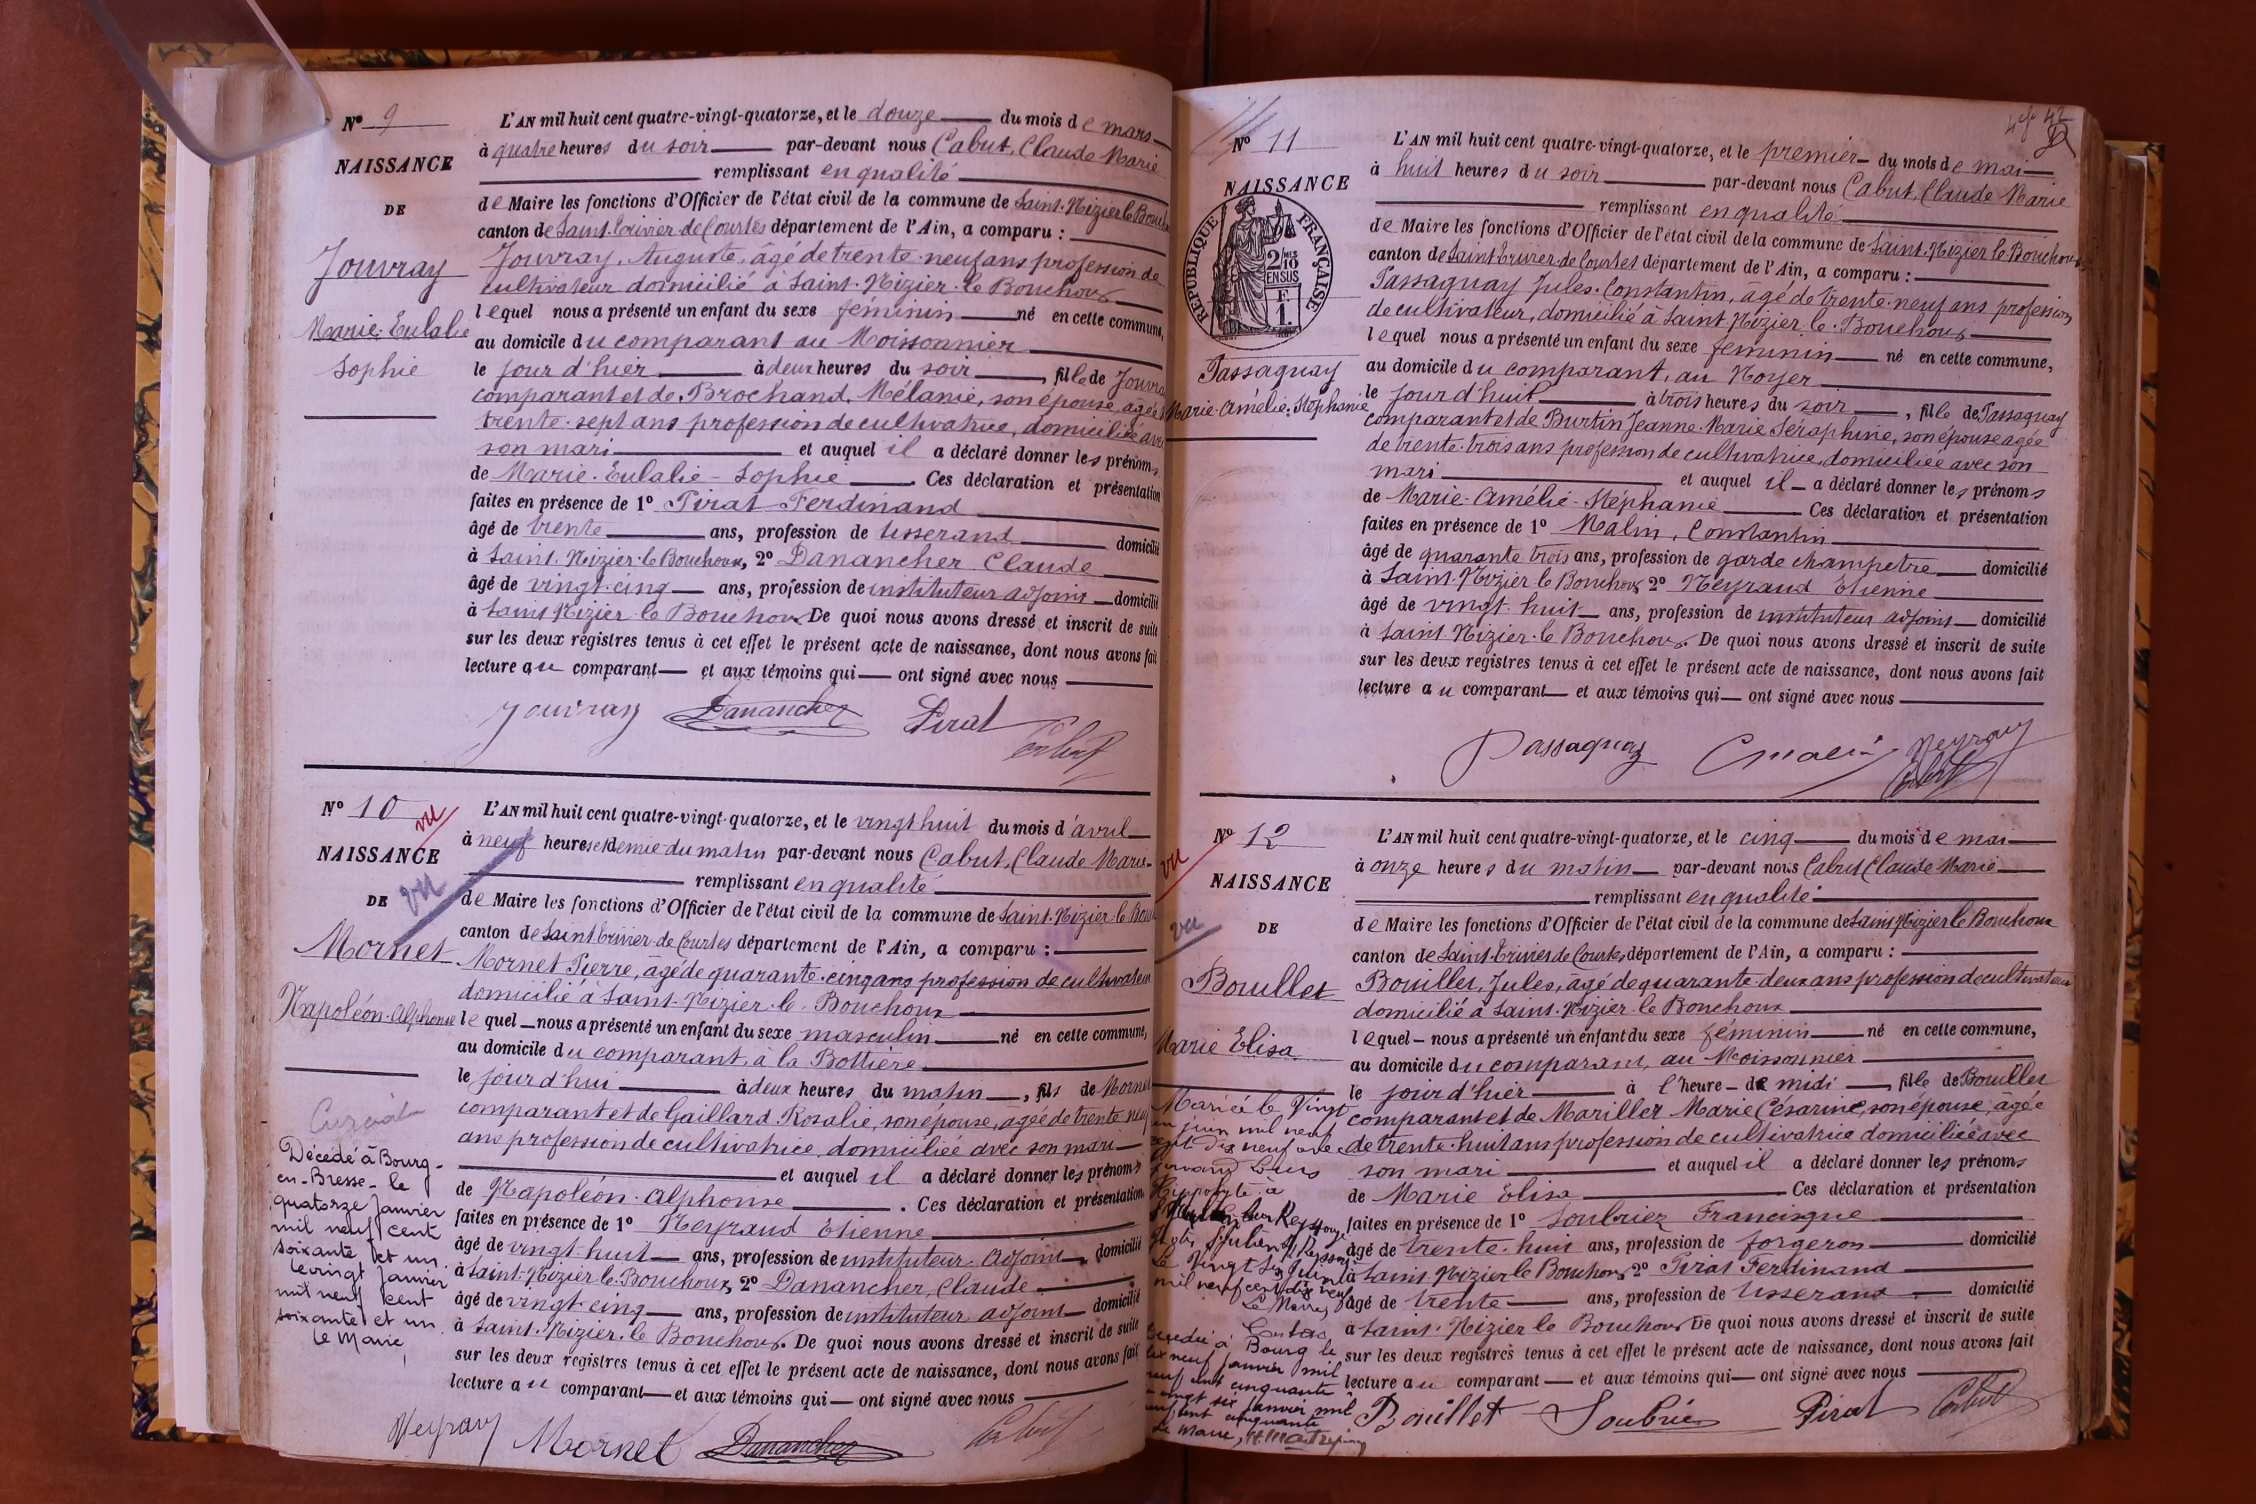 Nº 9
NAISSANCE
DE
Jouvray
Marie-Eulalie
Sophie
L'AN mil huit cent quatre-vingt-quatorze, et le douze du mois de mars
à quatre heures du soir par-devant nous Cabut, Claude Marie
remplissant en qualité
de Maire les fonctions d'Officier de l'état civil de la commune de Saint-Nizier le Bouch
canton de Saint-Trivier-de-Courtes département de l'Ain, a comparu :
Jouvray, Auguste, âgé de trente-neuf ans profession de
cultivateur domicilié à Saint-Nizier-le Bouchoux
lequel nous a présenté un enfant du sexe féminin né en cette commune,
au domicile du comparant au Moissonnier
le jour d'hier à deux heures du soir, fille de Jouvray
comparant et de Brochand, Mélanie, son épouse, âgée
trente-sept ans profession de cultivatrice, domiciliée avec
son mari et auquel il a déclaré donner les prénoms
de Marie-Eulalie-Sophie. Ces déclaration et présentation
faites en présence de 1º Pirat Ferdinand
âgé de trente ans, profession de tisserand domicilié
à Saint-Nizier-le Bouchoux, 2º Danancher Claude
âgé de vingt-cinq ans, profession de instituteur adjoint domicilié
à Saint Nizier-le Bouchoux De quoi nous avons dressé et inscrit de suite
sur les deux registres tenus à cet effet le présent acte de naissance, dont nous avons fait
lecture au comparant et aux témoins qui ont signé avec nous
Jouvray Danancher Pirat Cabut
Nº 10
vu
NAISSANCE
vu
DE
Mornet
Napoléon-Alphonse
Cuziat
Décédé à Bourg-
en-Bresse-le
quatorze Janvier
mil neuf cent
soixante et un.
le vingt Janvier
mil neuf cent
soixante et un
le Maire,
L'AN mil huit cent quatre-vingt-quatorze, et le vingt huit du mois d'avril
à neuf heures et demie du matin par-devant nous Cabut, Claude Marie
remplissant en qualité
de Maire les fonctions d'Officier de l'état civil de la commune de Saint-Nizier-le Bou
canton de Saint Trivier-de-Courtes département de l'Ain, a comparu :
Mornet Pierre, âgé de quarante-cinq ans profession de cultivateur
domicilié à Saint-Nizier-le-Bouchoux
lequel nous a présenté un enfant du sexe masculin né en cette commune,
au domicile du comparant, à la Bottière
le jour d'hui à deux heures du matin, fils de Mornet
comparant et de Gaillard Rosalie, son épouse, âgée de trente neuf
ans profession de cultivatrice, domiciliée avec son mari
et auquel il a déclaré donner les prénoms
de Napoléon-Alphonse. Ces déclaration et présentation
faites en présence de 1º Neyraud Etienne
âgé de vingt-huit ans, profession de instituteur adjoint, domicilié
à Saint-Nizier-le-Bouchoux, 2º Danancher, Claude
âgé de vingt-cinq ans, profession de instituteur adjoint domicilié
à Saint-Nizier-le Bouchoux. De quoi nous avons dressé et inscrit de suite
sur les deux registres tenus à cet effet le présent acte de naissance, dont nous avons fait
lecture au comparant et aux témoins qui ont signé avec nous
Neyraud Mornet Danancher Cabut
42
Nº 11
NAISSANCE
RÉPUBLIQUE FRANÇAISE
2/10 MES
EN SUS
F.
1.
Passaquay
Marie-Amélie-Stéphanie
L'AN mil huit cent quatre-vingt-quatorze, et le premier du mois de mai
à huit heures du soir par-devant nous Cabut, Claude Marie
remplissant en qualité
de Maire les fonctions d'Officier de l'état civil de la commune de Saint-Nizier le Bouchoux
canton de Saint Trivier-de-Courtes département de l'Ain, a comparu :
Passaquay Jules-Constantin, âgé de trente-neuf ans profession
de cultivateur, domicilié à Saint Nizier-le-Bouchoux
lequel nous a présenté un enfant du sexe féminin né en cette commune,
au domicile du comparant, au Noyer
le jour d'huit à trois heures du soir, fille de Passaquay
comparant et de Burtin Jeanne-Marie Séraphine, son épouse agée
de trente-trois ans profession de cultivatrice, domiciliée avec son
mari et auquel il a déclaré donner les prénoms
de Marie-Amélie-Stéphanie Ces déclaration et présentation
faites en présence de 1º Malin, Constantin
âgé de quarante trois ans, profession de garde champetre domicilié
à Saint-Nizier le Bouchoux 2º Neyraud Etienne
âgé de vingt-huit ans, profession de instituteur adjoint domicilié
à Saint Nizier-le Bouchoux. De quoi nous avons dressé et inscrit de suite
sur les deux registres tenus à cet effet le présent acte de naissance, dont nous avons fait
lecture au comparant et aux témoins qui ont signé avec nous
Passaquay C Malin Neyraud
Cabut
Nº 12
vu
NAISSANCE
vu
DE
Bouillet
Marie Elisa
Mariée le Vingt
un juin mil neuf
cent dix neuf avec
Louis
Hippolyte à
St Julien s/ Reyssouze
Le Vingt Six Juin
mil neuf cent dix neuf
Le Maire,
Décédée à Bourg le
dix neuf Janvier mil
neuf cent cinquante
le vingt six Janvier mil
neuf cent cinquante
Le Maire,
L'AN mil huit cent quatre-vingt-quatorze, et le cinq du mois de mai
à onze heures du matin par-devant nous Cabut Claude Marie
remplissant en qualité
de Maire les fonctions d'Officier de l'état civil de la commune de Saint Nizier le Bouchoux
canton de Saint-Trivier de Courtes, département de l'Ain, a comparu :
Bouillet, Jules, âgé de quarante-deux ans profession de cultivateur
domicilié à Saint-Nizier le Bouchoux
lequel nous a présenté un enfant du sexe féminin né en cette commune,
au domicile du comparant, au Moissonnier
le jour d'hier à l'heure de midi, fille de Bouillet
comparant et de Mariller Marie Césarine, son épouse, âgée
de trente-huit ans profession de cultivatrice domiciliée avec
son mari et auquel il a déclaré donner les prénoms
de Marie Elisa Ces déclaration et présentation
faites en présence de 1º Soubriez Francisque
âgé de trente-huit ans, profession de forgeron domicilié
à Saint Nizier le Bouchoux 2º Pirat Ferdinand
âgé de trente ans, profession de tisserand domicilié
à Saint-Nizier le Bouchoux De quoi nous avons dressé et inscrit de suite
sur les deux registres tenus à cet effet le présent acte de naissance, dont nous avons fait
lecture au comparant et aux témoins qui ont signé avec nous
Bouillet Soubrié Pirat Cabut